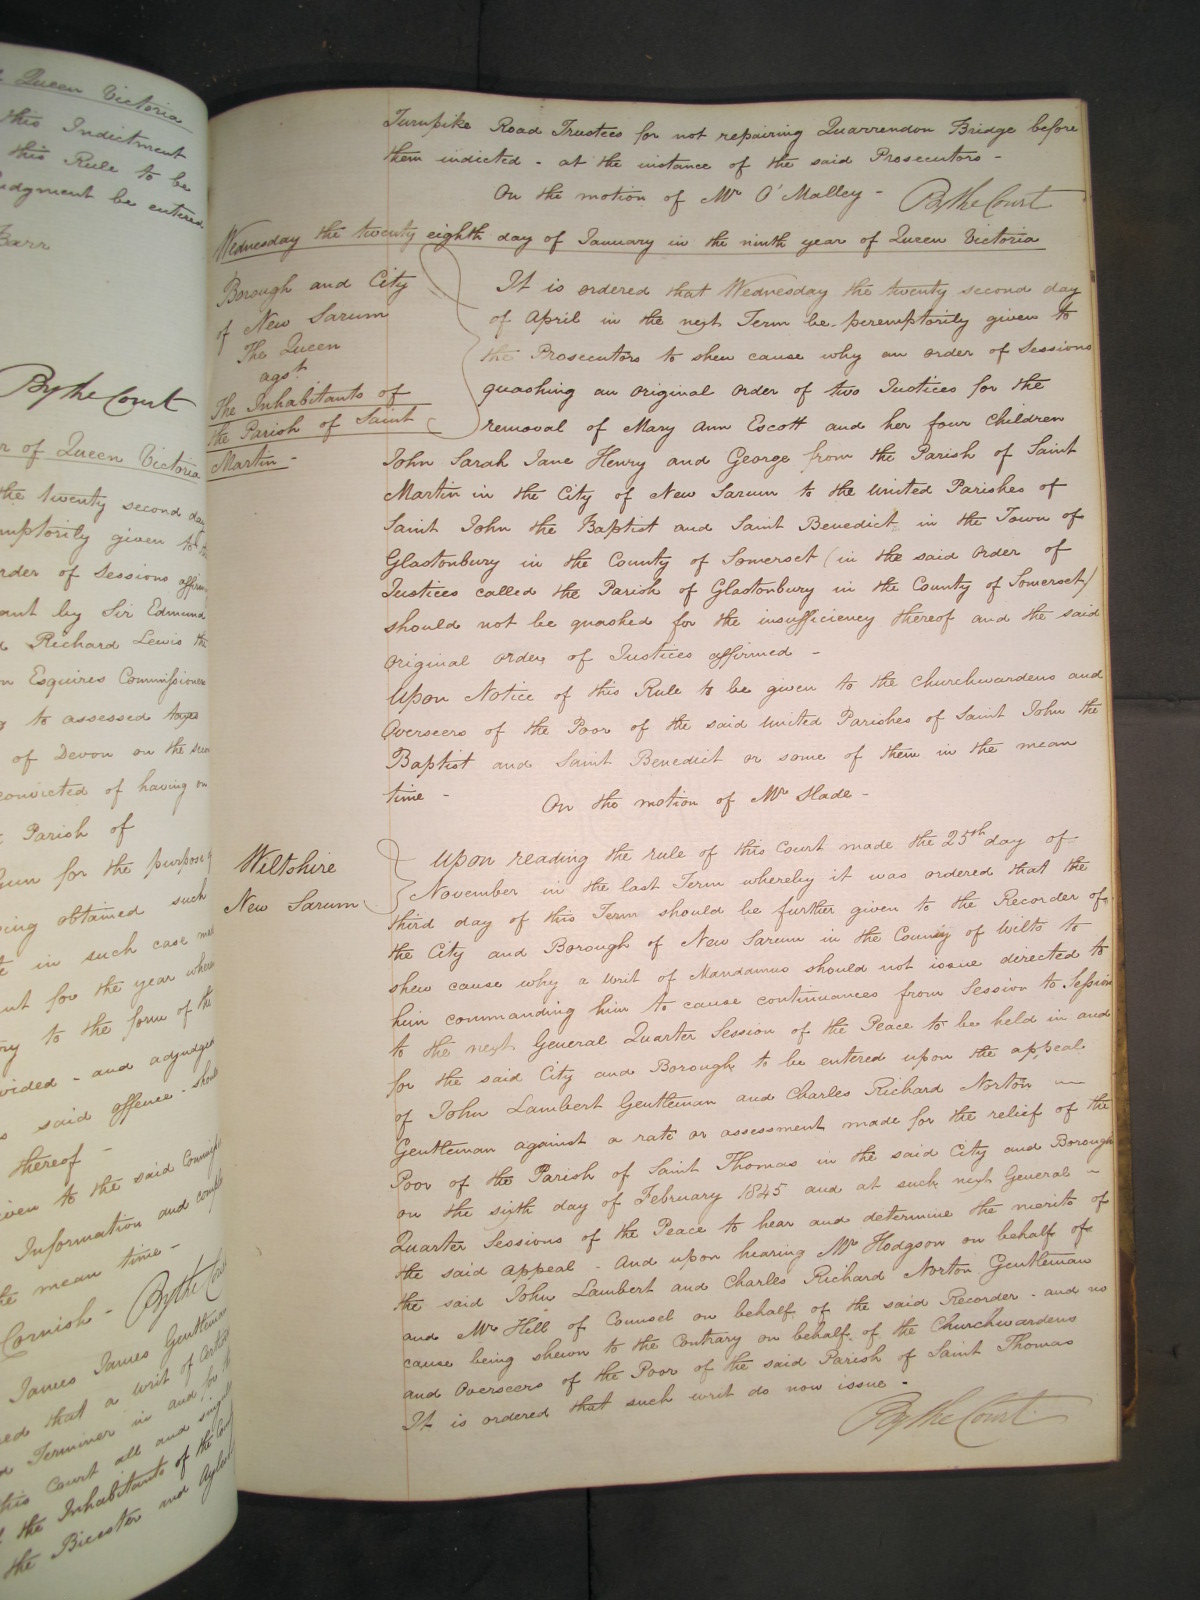 Queen Victoria
this Indictment
this Rule to be
Judgment be entered
Barr
By the Court
r of Queen Victoria
the twenty second day
emptorily given to the
rder of Sessions affirm
ant by Sir Edmund
d Richard Lewis the
n Esquires Commissioners
to assessed taxes
of Devon on the
convicted of having
Parish of
Gun for the purpose of
ving obtained such
in such case
ent for the year
to the form of the
vided - and adjudged
said offence should
thereof -
iven to the said
Information and
the mean time -
Cornish - By the Court
James James Gentleman
red that a writ of
Terminer in and for
this Court all and
the Inhabitants of the
the Bicester and
Turnpike Road Trustees for not repairing Quarrendon Bridge before
them indicted - at the instance of the said Prosecutors -
On the motion of Mr O'Malley - By the Court
Wednesday the twenty eighth day of January in the ninth year of Queen Victoria
Borough and City
of New Sarum
The Queen
agst
The Inhabitants of
the Parish of Saint
Martin -
It is ordered that Wednesday the twenty second day
of April in the next Term be peremptorily given to
the Prosecutors to shew cause why an order of Sessions
quashing an original order of two Justices for the
removal of Mary Ann Escott and her four children
John Sarah Jane Henry and George from the Parish of Saint
Martin in the City of New Sarum to the united Parishes of
Saint John the Baptist and Saint Benedict in the Town of
Glastonbury in the County of Somerset (in the said order of
Justices called the Parish of Glastonbury in the County of Somerset)
should not be quashed for the insufficiency thereof and the said
original order of Justices affirmed -
Upon Notice of this Rule to be given to the Churchwardens and
Overseers of the Poor of the said united Parishes of Saint John the
Baptist and Saint Benedict or some of them in the mean
time - On the motion of Mr Slade -
Wiltshire
New Sarum
Upon reading the rule of this Court made the 25th day of
November in the last Term whereby it was ordered that the
third day of this Term should be further given to the Recorder of
the City and Borough of New Sarum in the County of Wilts to
shew cause why a writ of Mandamus should not issue directed to
him commanding him to cause continuances from Session to Session
to the next General Quarter Session of the Peace to be held in and
for the said City and Borough to be entered upon the appeal
of John Lambert Gentleman and Charles Richard Norton
Gentleman against a rate or assessment made for the relief of the
Poor of the Parish of Saint Thomas in the said City and Borough
on the sixth day of February 1845 and at such next General
Quarter Sessions of the Peace to hear and determine the merits of
the said appeal - And upon hearing Mr Hodgson on behalf of
the said John Lambert and Charles Richard Norton Gentleman
and Mr Hill of Counsel on behalf of the said Recorder - and no
cause being shewn to the Contrary on behalf of the Churchwardens
and Overseers of the Poor of the said Parish of Saint Thomas
It is ordered that such writ do now issue -
By the Court